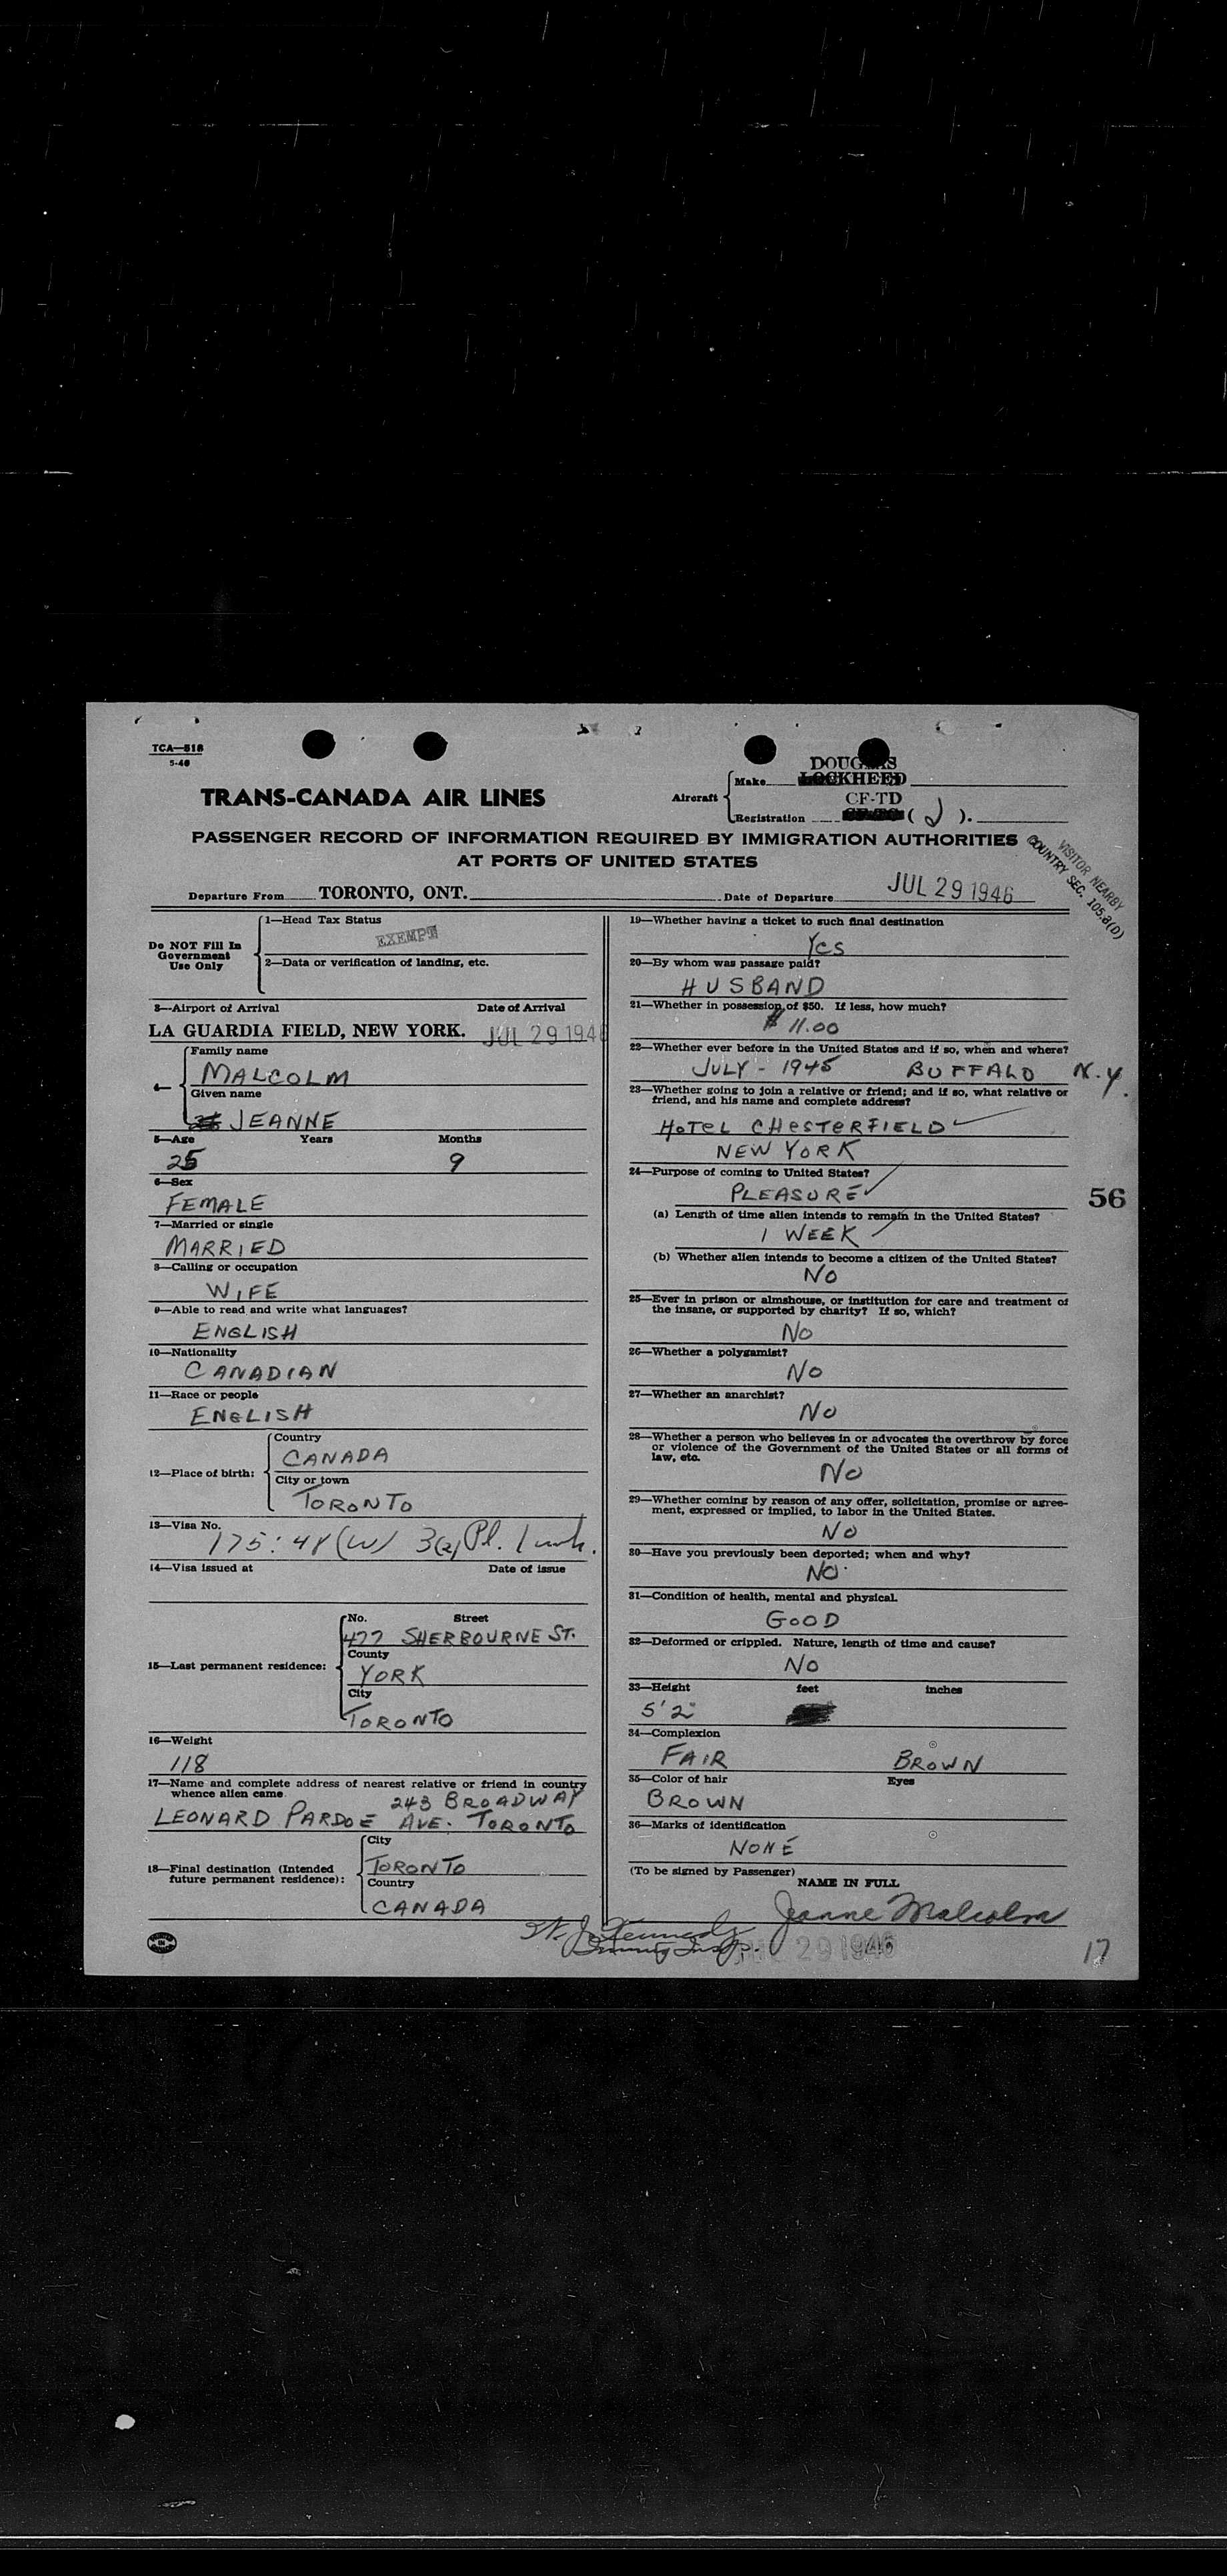 TCA—518
5-46
TRANS-CANADA AIR LINES
Aircraft
Make
DOUGLAS
LOCKHEED
Registration
CF-TD
( J ).
PASSENGER RECORD OF INFORMATION REQUIRED BY IMMIGRATION AUTHORITIES
AT PORTS OF UNITED STATES
VISITOR NEARBY
COUNTRY SEC. 105.3(D)
Departure From TORONTO, ONT. Date of Departure JUL 29 1946
Do NOT Fill In
Government
Use Only
1—Head Tax Status
EXEMPT
2—Data or verification of landing, etc.
3—Airport of Arrival Date of Arrival
LA GUARDIA FIELD, NEW YORK. JUL 29 1946
4—
Family name
MALCOLM
Given name
JEANNE
5—Age Years Months
25 9
6—Sex
FEMALE
7—Married or single
MARRIED
8—Calling or occupation
WIFE
9—Able to read and write what languages?
ENGLISH
10—Nationality
CANADIAN
11—Race or people
ENGLISH
12—Place of birth:
Country
CANADA
City or town
TORONTO
13—Visa No.
175:48 (W) 3(2) Pl. 1 wk.
14—Visa issued at Date of issue
15—Last permanent residence:
No. Street
477 SHERBOURNE ST.
County
YORK
City
TORONTO
16—Weight
118
17—Name and complete address of nearest relative or friend in country
whence alien came.
243 BROADWAY
LEONARD PARDOE AVE. TORONTO
18—Final destination (Intended
future permanent residence):
City
TORONTO
Country
CANADA
19—Whether having a ticket to such final destination
YES
20—By whom was passage paid?
HUSBAND
21—Whether in possession of $50. If less, how much?
$ 11.00
22—Whether ever before in the United States and if so, when and where?
JULY - 1945 BUFFALO N.Y.
23—Whether going to join a relative or friend; and if so, what relative or
friend, and his name and complete address?
HOTEL CHESTERFIELD
NEW YORK
24—Purpose of coming to United States?
PLEASURE
56
(a) Length of time alien intends to remain in the United States?
1 WEEK
(b) Whether alien intends to become a citizen of the United States?
NO
25—Ever in prison or almshouse, or institution for care and treatment of
the insane, or supported by charity? If so, which?
NO
26—Whether a polygamist?
NO
27—Whether an anarchist?
NO
28—Whether a person who believes in or advocates the overthrow by force
or violence of the Government of the United States or all forms of
law, etc.
NO
29—Whether coming by reason of any offer, solicitation, promise or agree-
ment, expressed or implied, to labor in the United States.
NO
30—Have you previously been deported; when and why?
NO.
31—Condition of health, mental and physical.
GOOD
32—Deformed or crippled. Nature, length of time and cause?
NO
33—Height feet inches
5' 2"
34—Complexion
FAIR BROWN
35—Color of hair Eyes
BROWN
36—Marks of identification
NONE
(To be signed by Passenger)
NAME IN FULL
Jeanne Malcolm
W. J. Kennedy
Immig. Insp.
JUL 29 1946
17